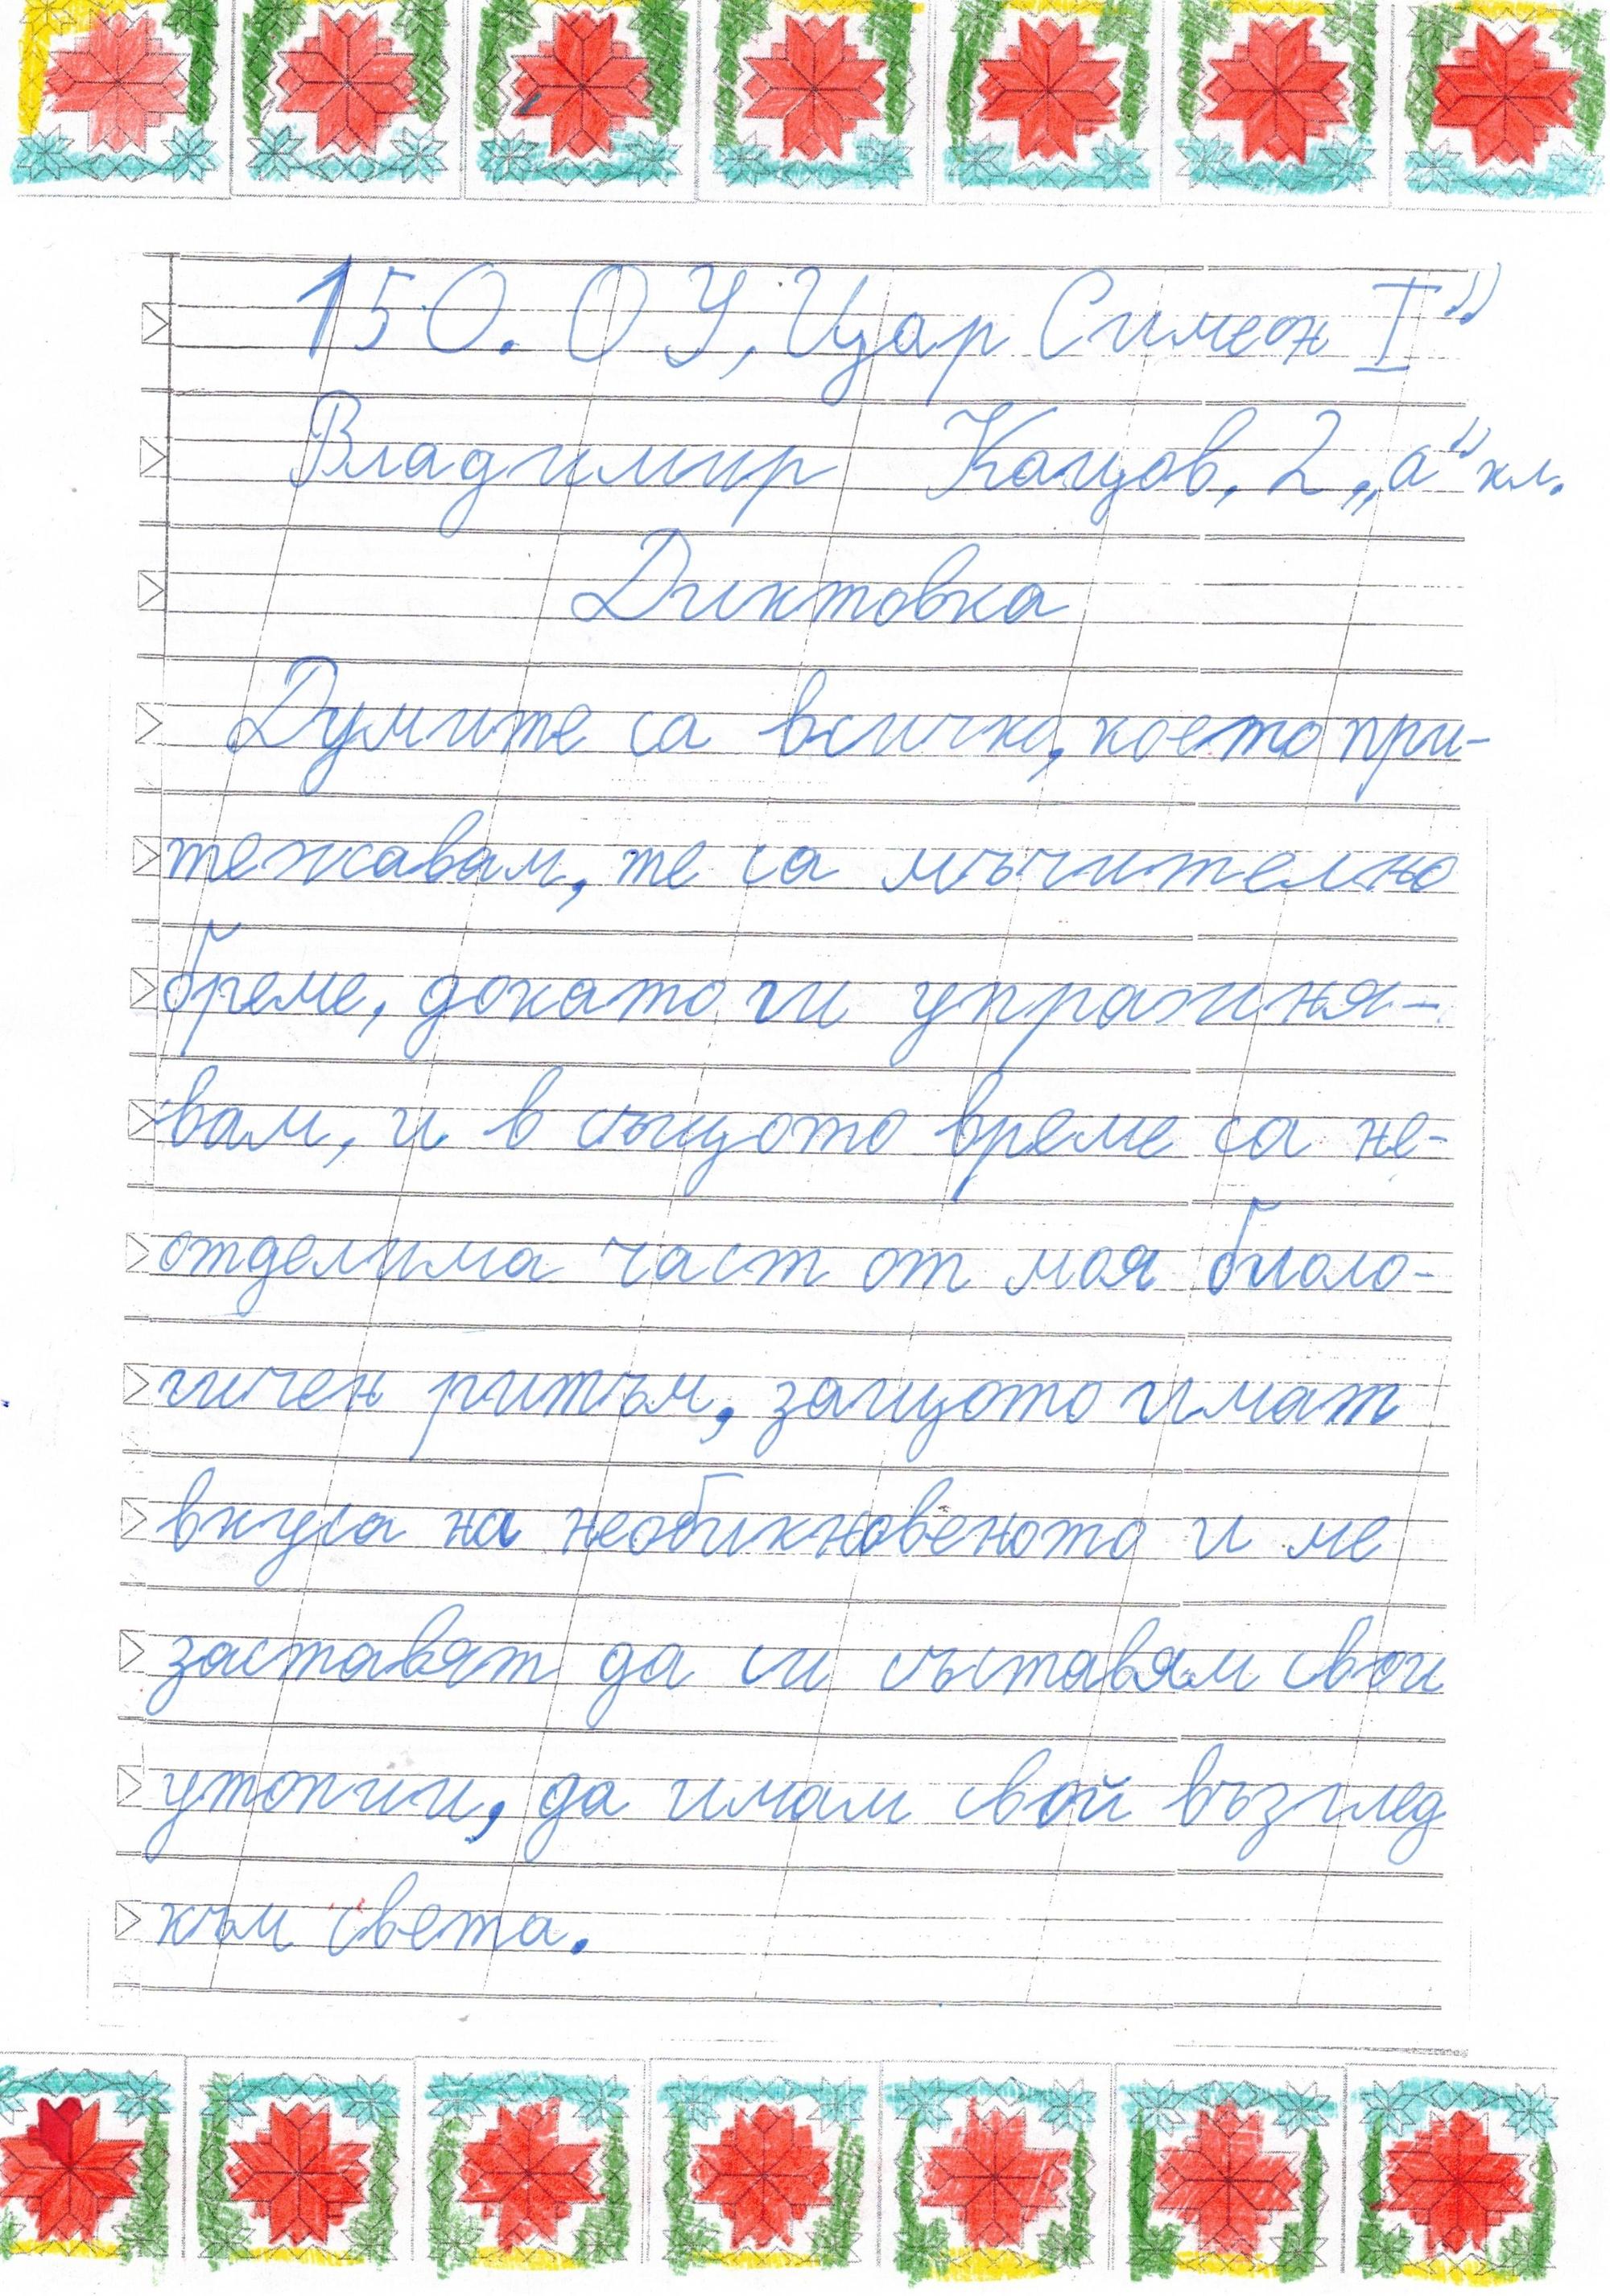 150. ОУ, Цар Симеон I"
Владимир Кацов, 2 „а" кл.
Диктовка
Думите са всичко, което при-
тежавам, те са мъчително
бреме, докато ги упражня-
вам, и в същото време са не-
отделима част от моя биоло-
гичен ритъм, защото имат
вкуса на необикновеното и ме
заставят да си съставям свои
утопии, да имам свой възглед
към света.